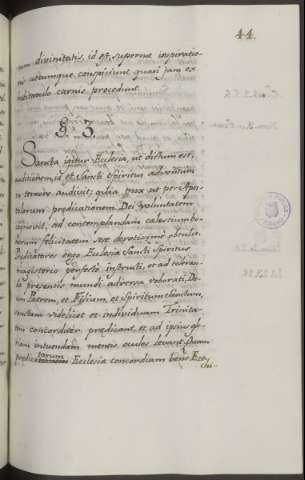 44.
num divinitatis, id est, superne inspiratio-
nis utcumque conspiciunt quasi jam ex
cubiculo carnis procedunt.
§. 3.
Sancta igitur Ecclesia, ut dictum est,
id est Sancti Spiritus adventum
audivit, quia mox ut per Apos-
tolorum predicationem Dei voluntatem
ad contemplandam celestium bo-
norum felicitatem sue devotionis oculos
Predicatores ergo Ecclesie Sancti Spiritus
magisterio perfecte instruti, et ad toleran-
da presentis mundi adversa roborati, De-
um Patrem, et Filium, et Spiritum Sanctum,
sanctam videlicet et individuam Trinita-
tem concorditer predicant, et ad ipsius glo-
riam intuendam mentis oculos levant. Quam
predicatorum Ecclesie concordiam bene Eze-
chi-